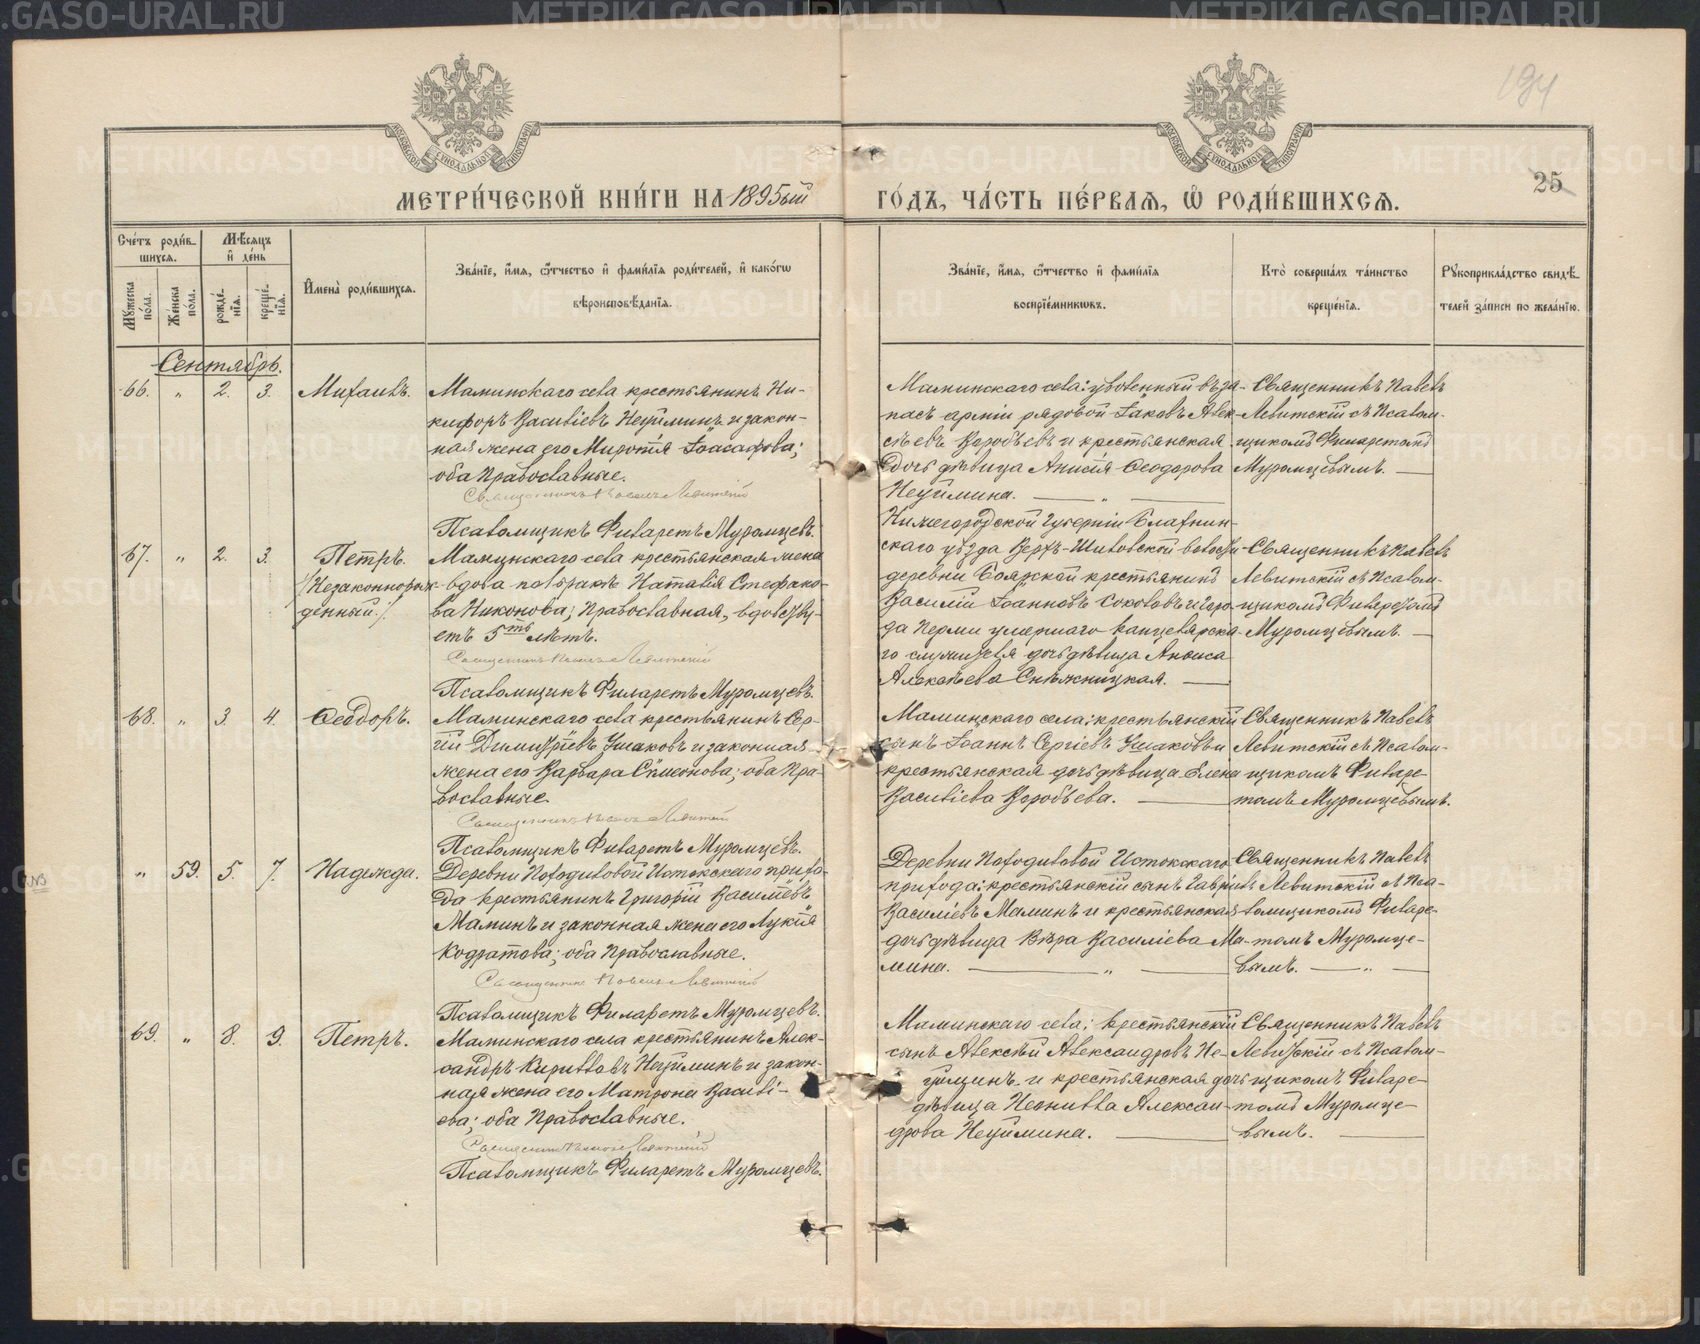 194
25
МЕТРИ́ЧЕСКОЙ КНИ́ГИ НА 1895ый ГО́ДЪ, ЧА́СТЬ ПЕ́РВАѦ, Ѡ҆ РОДИ́ВШИХСѦ.
Сче́тъ роди́в-
шихсѧ.
Мѣ́сѧцъ
и҆ де́нь
Мꙋ́жеска по́ла.
Же́нска по́ла.
рожде́нїѧ.
креще́нїѧ.
И҆мена̀ роди́вшихсѧ.
Зва́нїе, и҆́мѧ, ѻ҆́тчество и҆ фами́лїѧ роди́телей, и҆ како́гѡ
вѣроисповѣ́данїѧ.
Зва́нїе, и҆́мѧ, ѻ҆́тчество и҆ фами́лїѧ
воспрїе́мникѡвъ.
Кто̀ соверша́лъ та́инство
креще́нїѧ.
Рꙋкоприкла́дство свидѣ́-
телей за́писи по жела́нїю.
Сентябрь.
66. " 2. 3. Михаилъ.
Маминскаго села крестьянинъ Ни-
кифоръ Василіевъ Неуйминъ и закон-
ная жена его Миропія Іоасафова;
оба Православные.
Священникъ Павелъ Левитскій
Псаломщикъ Филаретъ Муромцевъ.
Маминскаго села: уволенный въ за-
пасъ арміи рядовой Іаковъ Алек-
сѣевъ Воробьевъ и крестьянская
дочь дѣвица Анисія Ѳеодорова
Неуймина. — " —
Священникъ Павелъ
Левитскій съ Псалом-
щикомъ Филаретомъ
Муромцевымъ. —
67. " 2. 3. Петръ.
/Незаконнорож-
денный./
Маминскаго села крестьянская жена
вдова по 1 бракѣ Наталія Стефано-
ва Никонова; Православная, вдовству-
етъ 5ть лѣтъ.
Священникъ Павелъ Левитскій
Псаломщикъ Филаретъ Муромцевъ.
Нижегородской Губерніи
скаго уѣзда волости
деревни крестьянинъ
Василій Іоанновъ Соколовъ и горо-
да Перми умершаго канцелярска-
го служителя дочь дѣвица
Алексѣева Снѣжницкая. —
Священникъ Павелъ
Левитскій съ Псалом-
щикомъ Филаретомъ
Муромцевымъ. —
68. " 3. 4. Ѳеодоръ.
Маминскаго села крестьянинъ Сер-
гій Димитріевъ Ушаковъ и законная
жена его Варвара Симеонова; оба Пра-
вославные.
Священникъ Павелъ Левитскій
Псаломщикъ Филаретъ Муромцевъ.
Маминскаго села; крестьянскій
сынъ Іоаннъ Сергіевъ Ушаковъ и
крестьянская дочь дѣвица Елена
Василіева Воробьева. —
Священникъ Павелъ
Левитскій съ Псалом-
щикомъ Филаре-
томъ Муромцевымъ.
" 59. 5. 7. Надежда.
Деревни Походиловой Истокскаго прихо-
да крестьянинъ Григорій Василіевъ
Маминъ и законная жена его Лукія
Кодратова; оба Православные.
Священникъ Павелъ Левитскій
Псаломщикъ Филаретъ Муромцевъ.
Деревни Походиловой Истокскаго
прихода; крестьянскій сынъ Гавріилъ
Василіевъ Маминъ и крестьянская
дочь дѣвица Вѣра Василіева Ма-
мина. — " —
Священникъ Павелъ
Левитскій съ Пса-
ломщикомъ Филаре-
томъ Муромце-
вымъ. — " —
69. " 8. 9. Петръ.
Маминскаго села крестьянинъ Алек-
сандръ Кирилловъ Неуйминъ и закон-
ная жена его Матрона Василі-
ева; оба Православные.
Священникъ Павелъ Левитскій
Псаломщикъ Филаретъ Муромцевъ.
Маминскаго села; крестьянскій
сынъ Алексѣй Александровъ Не-
уйминъ и крестьянская дочь
дѣвица Неонилла Алексан-
дрова Неуймина. —
Священникъ Павелъ
Левитскій съ Псалом-
щикомъ Филаре-
томъ Муромце-
вымъ. —
METRIKI.GASO-URAL.RU